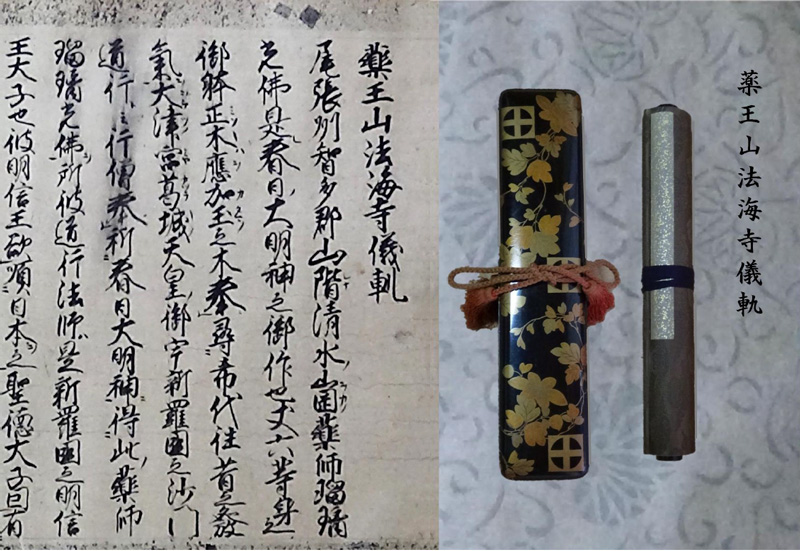 薬王山法海寺儀軌
藥王山法海寺儀軌
尾張州智多郡山階清水山国藥師瑠璃
光佛是春日大明神之御作也丈六等身之
御躰正木應加王之木奉尋希代往昔之發
氣大津宮葛城天皇御宇新羅國之沙門
道行々行僧奉祈春日大明神得此藥師
瑠璃光佛所彼道行法師是新羅國之明信
王大子也彼明信王欲領日本之聖德大子曰有